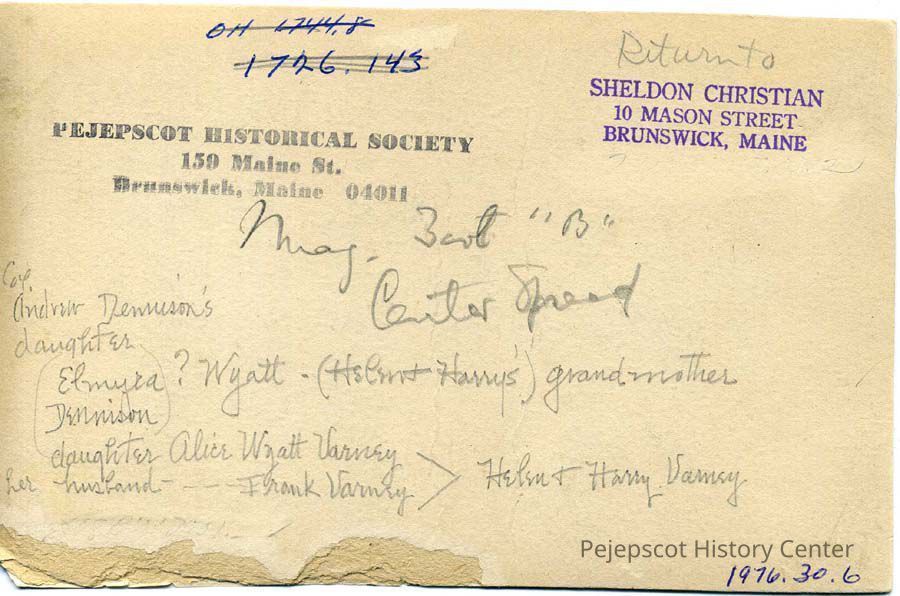 OH 1744.8
1726.143
Return to
SHELDON CHRISTIAN
10 MASON STREET
BRUNSWICK, MAINE
PEJEPSCOT HISTORICAL SOCIETY
159 Maine St.
Brunswick, Maine 04011
Mag. "B"
Center Spread
Andrew Dennison's
daughter
Elmyra ? Wyatt - (Helen & Harry's) grandmother
Dennison
daughter Alice Wyatt Varney
her husband --- Frank Varney > Helen & Harry Varney
Pejepscot History Center
1976.30.6